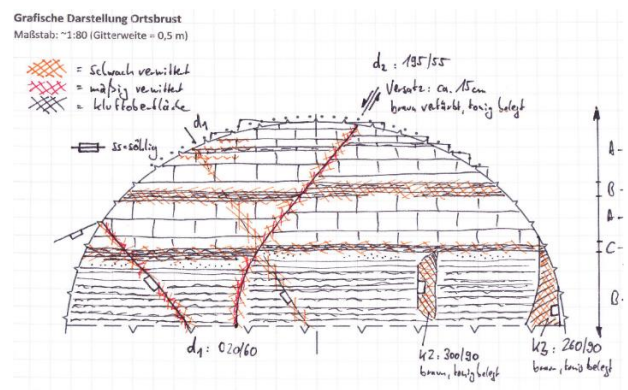 Grafische Darstellung Ortsbrust
Maßstab: ~1:80 (Gitterweite = 0,5 m)
= schwach verwittert
= mäßig verwittert
= Kluftoberfläche
ss=söhlig
d₂ : 195/55
Versatz: ca. 15cm
braun verfärbt, tonig belegt
d₁
A
B
A
C
B
d₁: 020/60
K2: 300/90
braun, tonig belegt
K3: 260/90
braun, tonig belegt